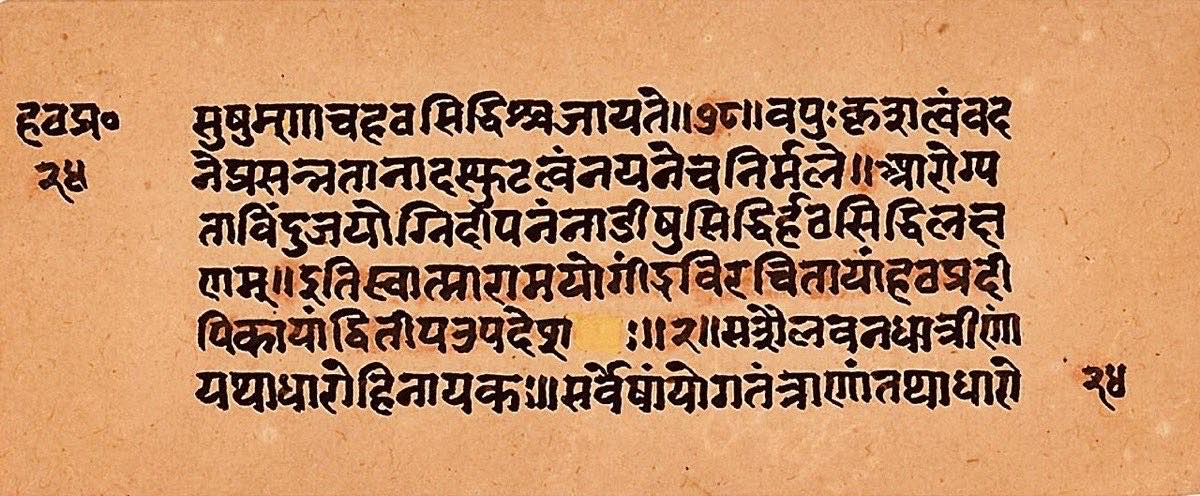 हवप्र०
२४
सुषुम्णाचहवसिद्धिश्चजायते॥७८॥वपुःकृशत्वंवद
नेप्रसन्नतानादस्फुटत्वंनयनेचनिर्मले॥आरोग्य
ताविंदुजयोग्निदीपनंनाडीषुसिद्धिर्हवसिद्धिलक्ष
णम्॥इतिस्वात्मारामयोगींद्रविरचितायांहवप्रदी
पिकायांद्वितीयउपदेश :॥२॥सशैलवनधात्रीणां
यथाधारोहिनायकः॥सर्वेषांयोगतंत्राणांतथाधारो
२४